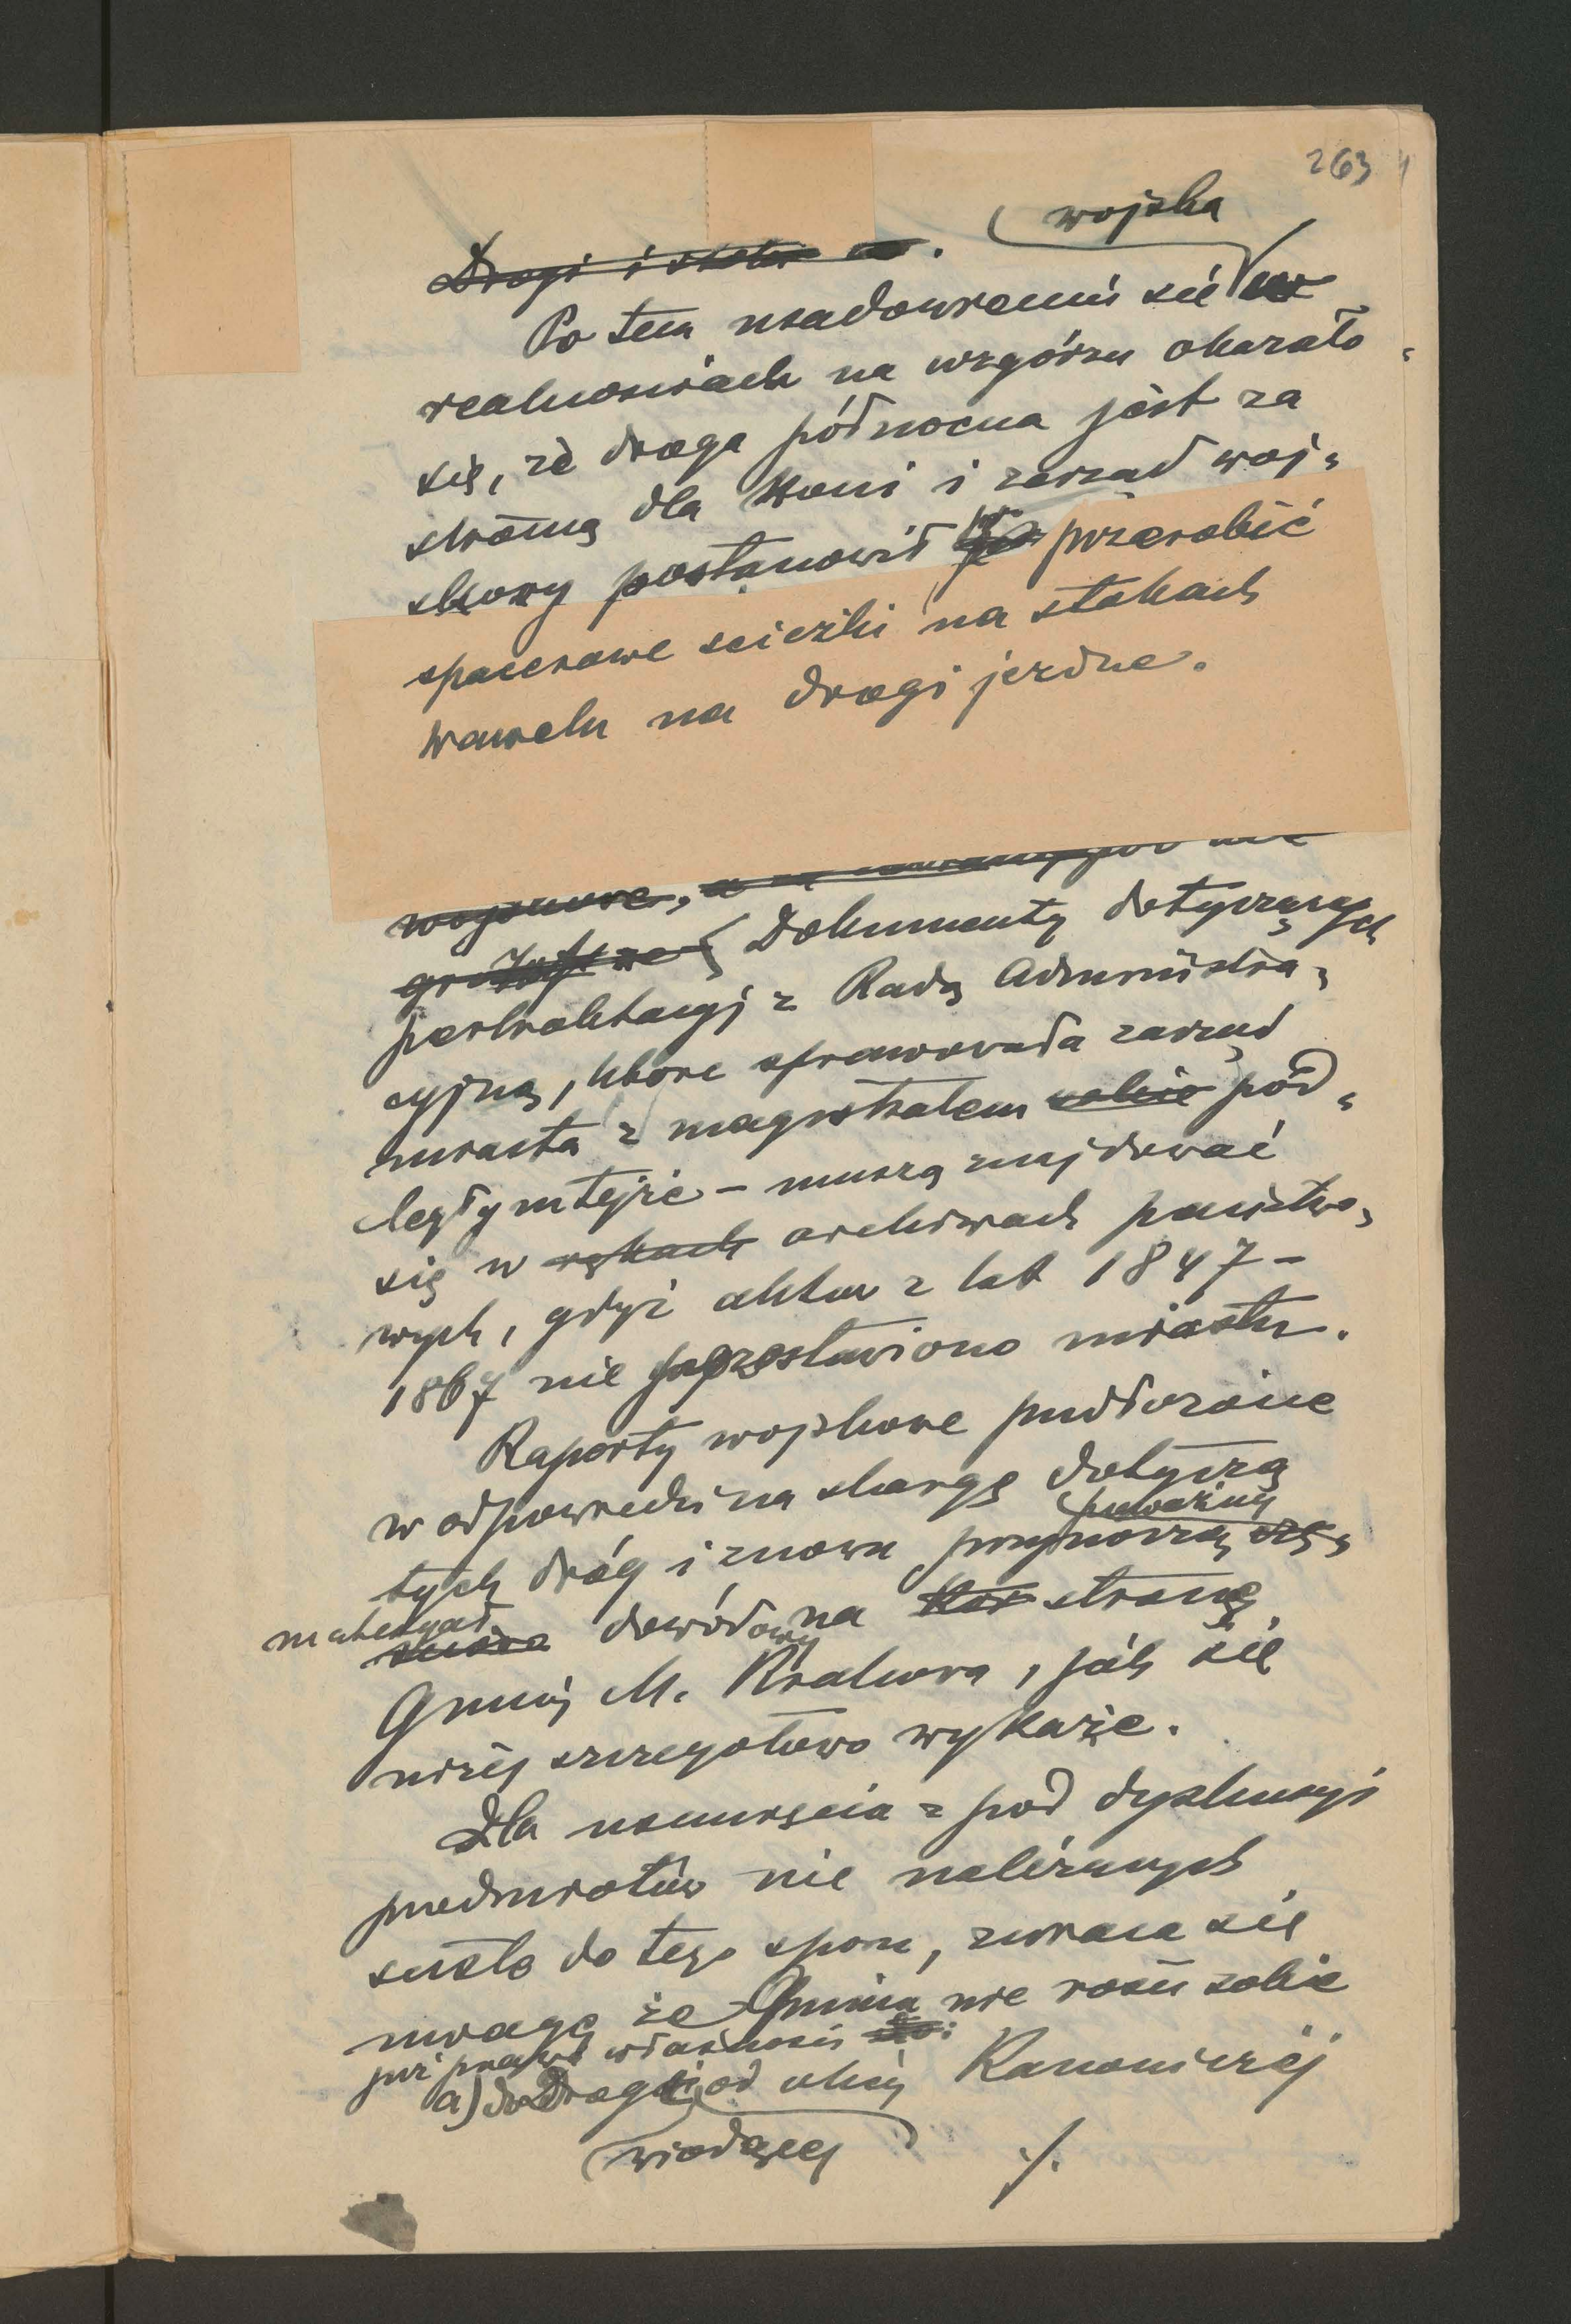 263
wojska
Drogi i stoki
Po tem usadowieniu się w
realnościach na wzgórzu okazało
się, że droga północna jest za
stromą dla koni i zarząd woj-
skowy postanowił przerobić
spacerowe ścieżki na stokach
Wawelu na drogi jezdne.
wojskowe, a
Dokumenty dotyczących
pertraktacyj z Radą Administra-
cyjną, która sprawowała zarząd
miasta z magistratem sobie pod-
ległym tejże – muszą znajdować
się w rękach archiwach państwo-
wych, gdyż aktów z lat 1847 –
1867 nie pozostawiono miastu.
Raporty wojskowe przedłożone
w odpowiedzi na skargę dotyczą
poważny
tych dróg i znowu przynoszą
materyał
dowodowy na stronę
Gminy M. Krakowa, jak się
niżej szczegółowo wykaże.
Dla usunięcia z pod dyskusyi
przedmiotów nie należących
ściśle do tego sporu, zwraca się
uwagę że Gmina nie rości sobie
już prawa własności
a) do Drogi od ulicy Kanoniczej
wiodącej
./.